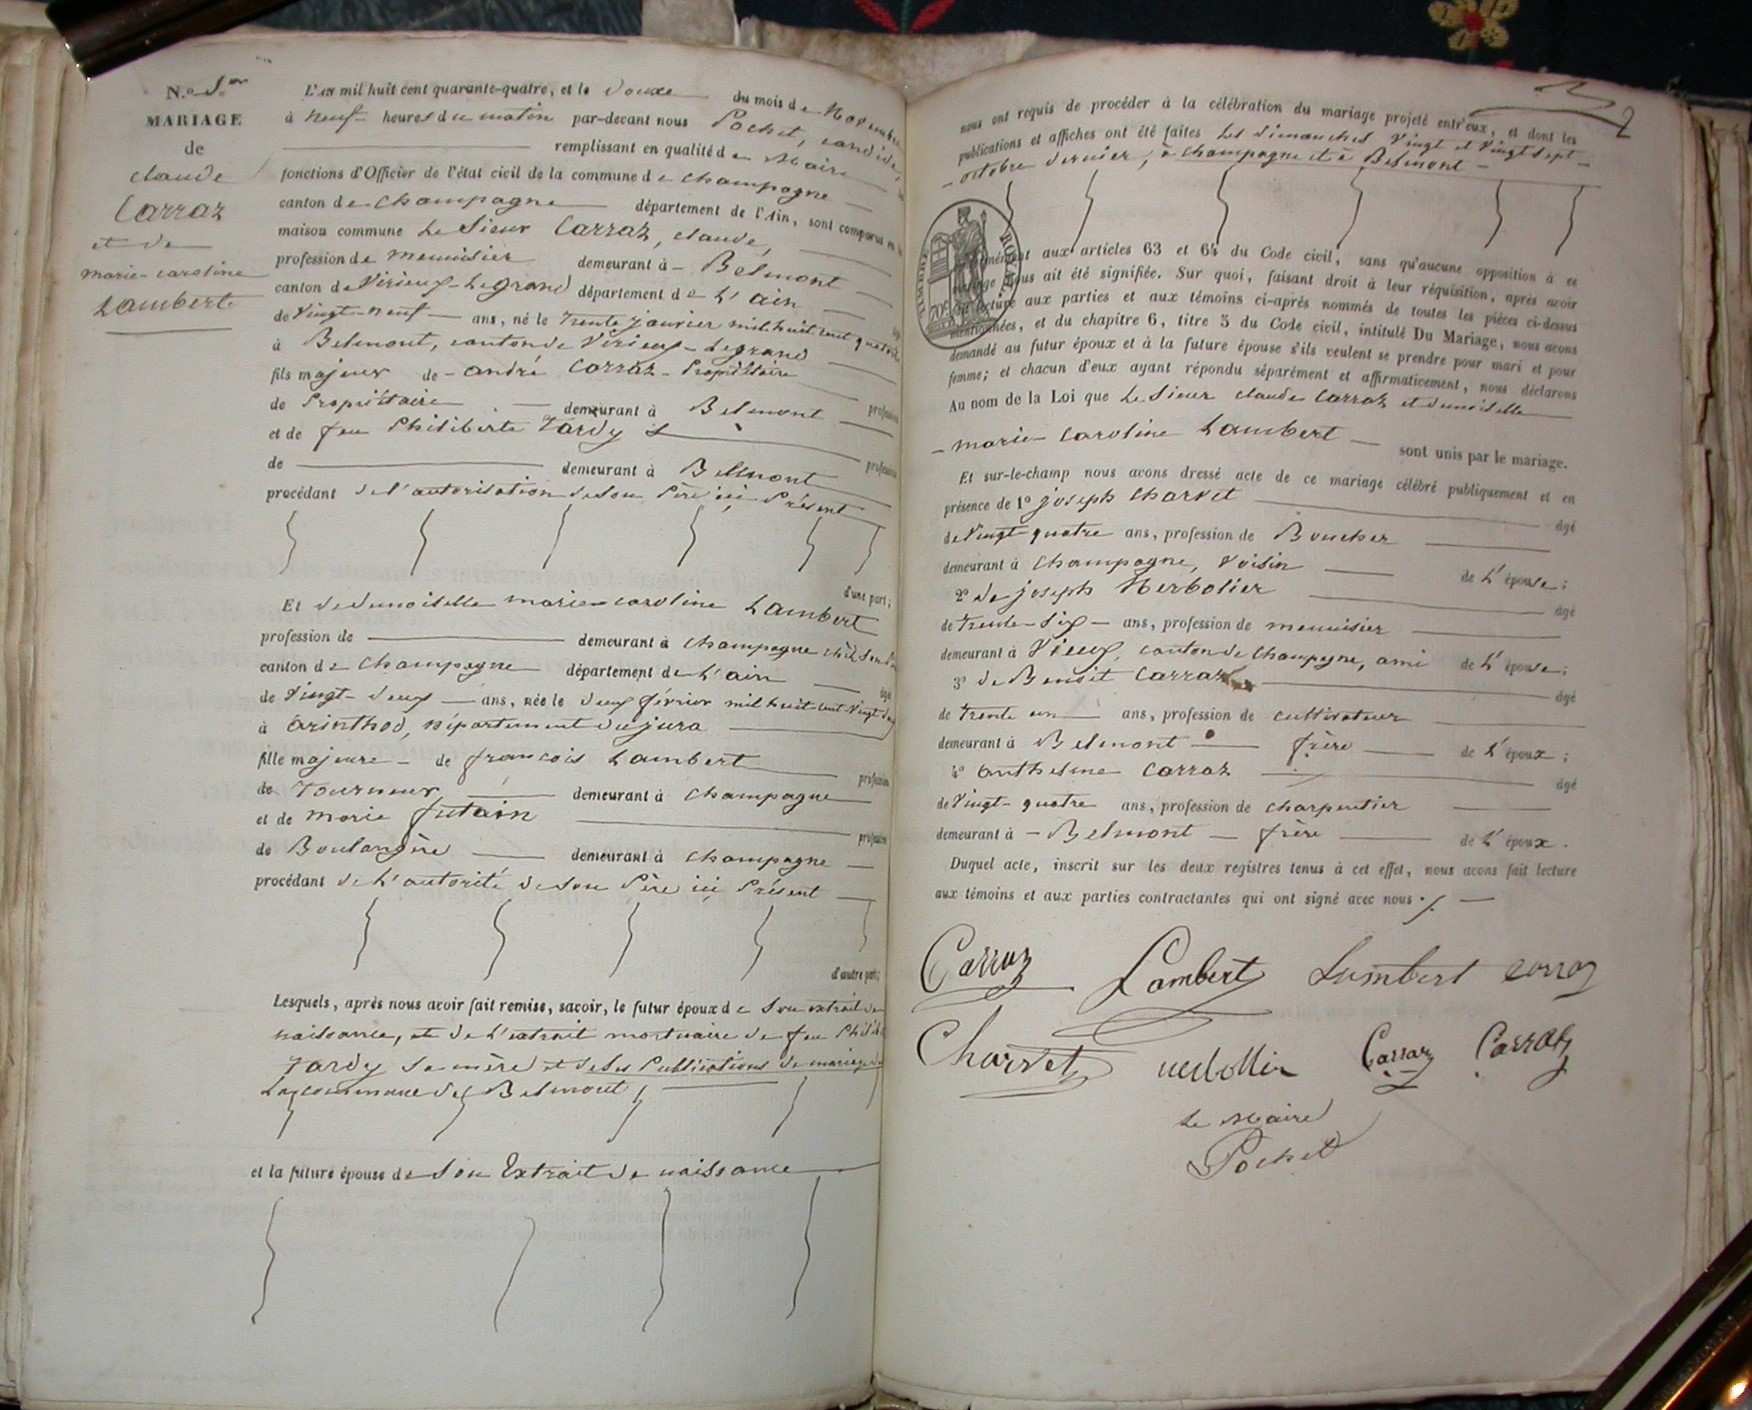 N.o
MARIAGE
de
claude
Carraz
et de
marie-caroline
Lambert
L'an mil huit cent quarante-quatre, et le Douze du mois de Novembre
à Neuf heures du matin par-devant nous Pochet, candide,
remplissant en qualité de Maire
fonctions d'Officier de l'état civil de la commune de Champagne
canton de Champagne département de l'Ain, sont comparus en la
maison commune Le Sieur Carraz, claude,
profession de menuisier demeurant à Belmont
canton de Virieux-Legrand département de L'ain
de Vingt-neuf ans, né le trente janvier mil huit cent
à Belmont, canton de Virieux-Legrand
fils majeur de andré Carraz Propriétaire
profession
de Propriétaire demeurant à Belmont
et de feu Philiberte Tardy
profession
de demeurant à Belmont
procédant de l'autorisation de son Père ici Présent
d'une part;
Et de demoiselle marie-caroline Lambert
profession de demeurant à Champagne chez son
canton de Champagne département de L'ain
âgée
de Vingt-deux ans, née le deux février mil huit cent vingt
à arinthod, Département du jura
fille majeure de françois Lambert
profession
de Tourneur demeurant à Champagne
et de marie futain
profession
de Boulangère demeurant à Champagne
procédant de L'autorité de son Père ici Présent
d'autre part;
Lesquels, après nous avoir fait remise, savoir, le futur époux de Son extrait de
naissance, et de L'extrait mortuaire de feu
Tardy Sa mère et de Ses Publications de mariage
La commune de Belmont
et la future épouse de Son Extrait de naissance
2
nous ont requis de procéder à la célébration du mariage projeté entr'eux, et dont les
publications et affiches ont été faites Les Dimanches Vingt et Vingt Sept
octobre dernier, à Champagne et à Belmont
TIMBRE ROYAL
aux articles 63 et 64 du Code civil, sans qu'aucune opposition à ce
mariage nous ait été signifiée. Sur quoi, faisant droit à leur réquisition, après avoir
lecture aux parties et aux témoins ci-après nommés de toutes les pièces ci-dessus
mentionnées, et du chapitre 6, titre 5 du Code civil, intitulé Du Mariage, nous avons
demandé au futur époux et à la future épouse s'ils veulent se prendre pour mari et pour
femme; et chacun d'eux ayant répondu séparément et affirmativement, nous déclarons
Au nom de la Loi que Le Sieur claude Carraz et demoiselle
marie-caroline Lambert sont unis par le mariage.
Et sur-le-champ nous avons dressé acte de ce mariage célébré publiquement et en
présence de 1o joseph Charvet âgé
de Vingt quatre ans, profession de Boucher
demeurant à Champagne, Voisin de L'épouse;
2o de joseph Herbolier âgé
de trente-Six ans, profession de menuisier
demeurant à Vieux, canton de Champagne, ami de L'épouse;
3o de Benoit Carraz âgé
de trente un ans, profession de cultivateur
demeurant à Belmont frère de L'époux;
4o anthelme Carraz âgé
de Vingt-quatre ans, profession de charpentier
demeurant à Belmont frère de L'époux.
Duquel acte, inscrit sur les deux registres tenus à cet effet, nous avons fait lecture
aux témoins et aux parties contractantes qui ont signé avec nous ./.
Carraz Lambert Lambert Carraz
Charvet Carraz Carraz
Le Maire
Pochet